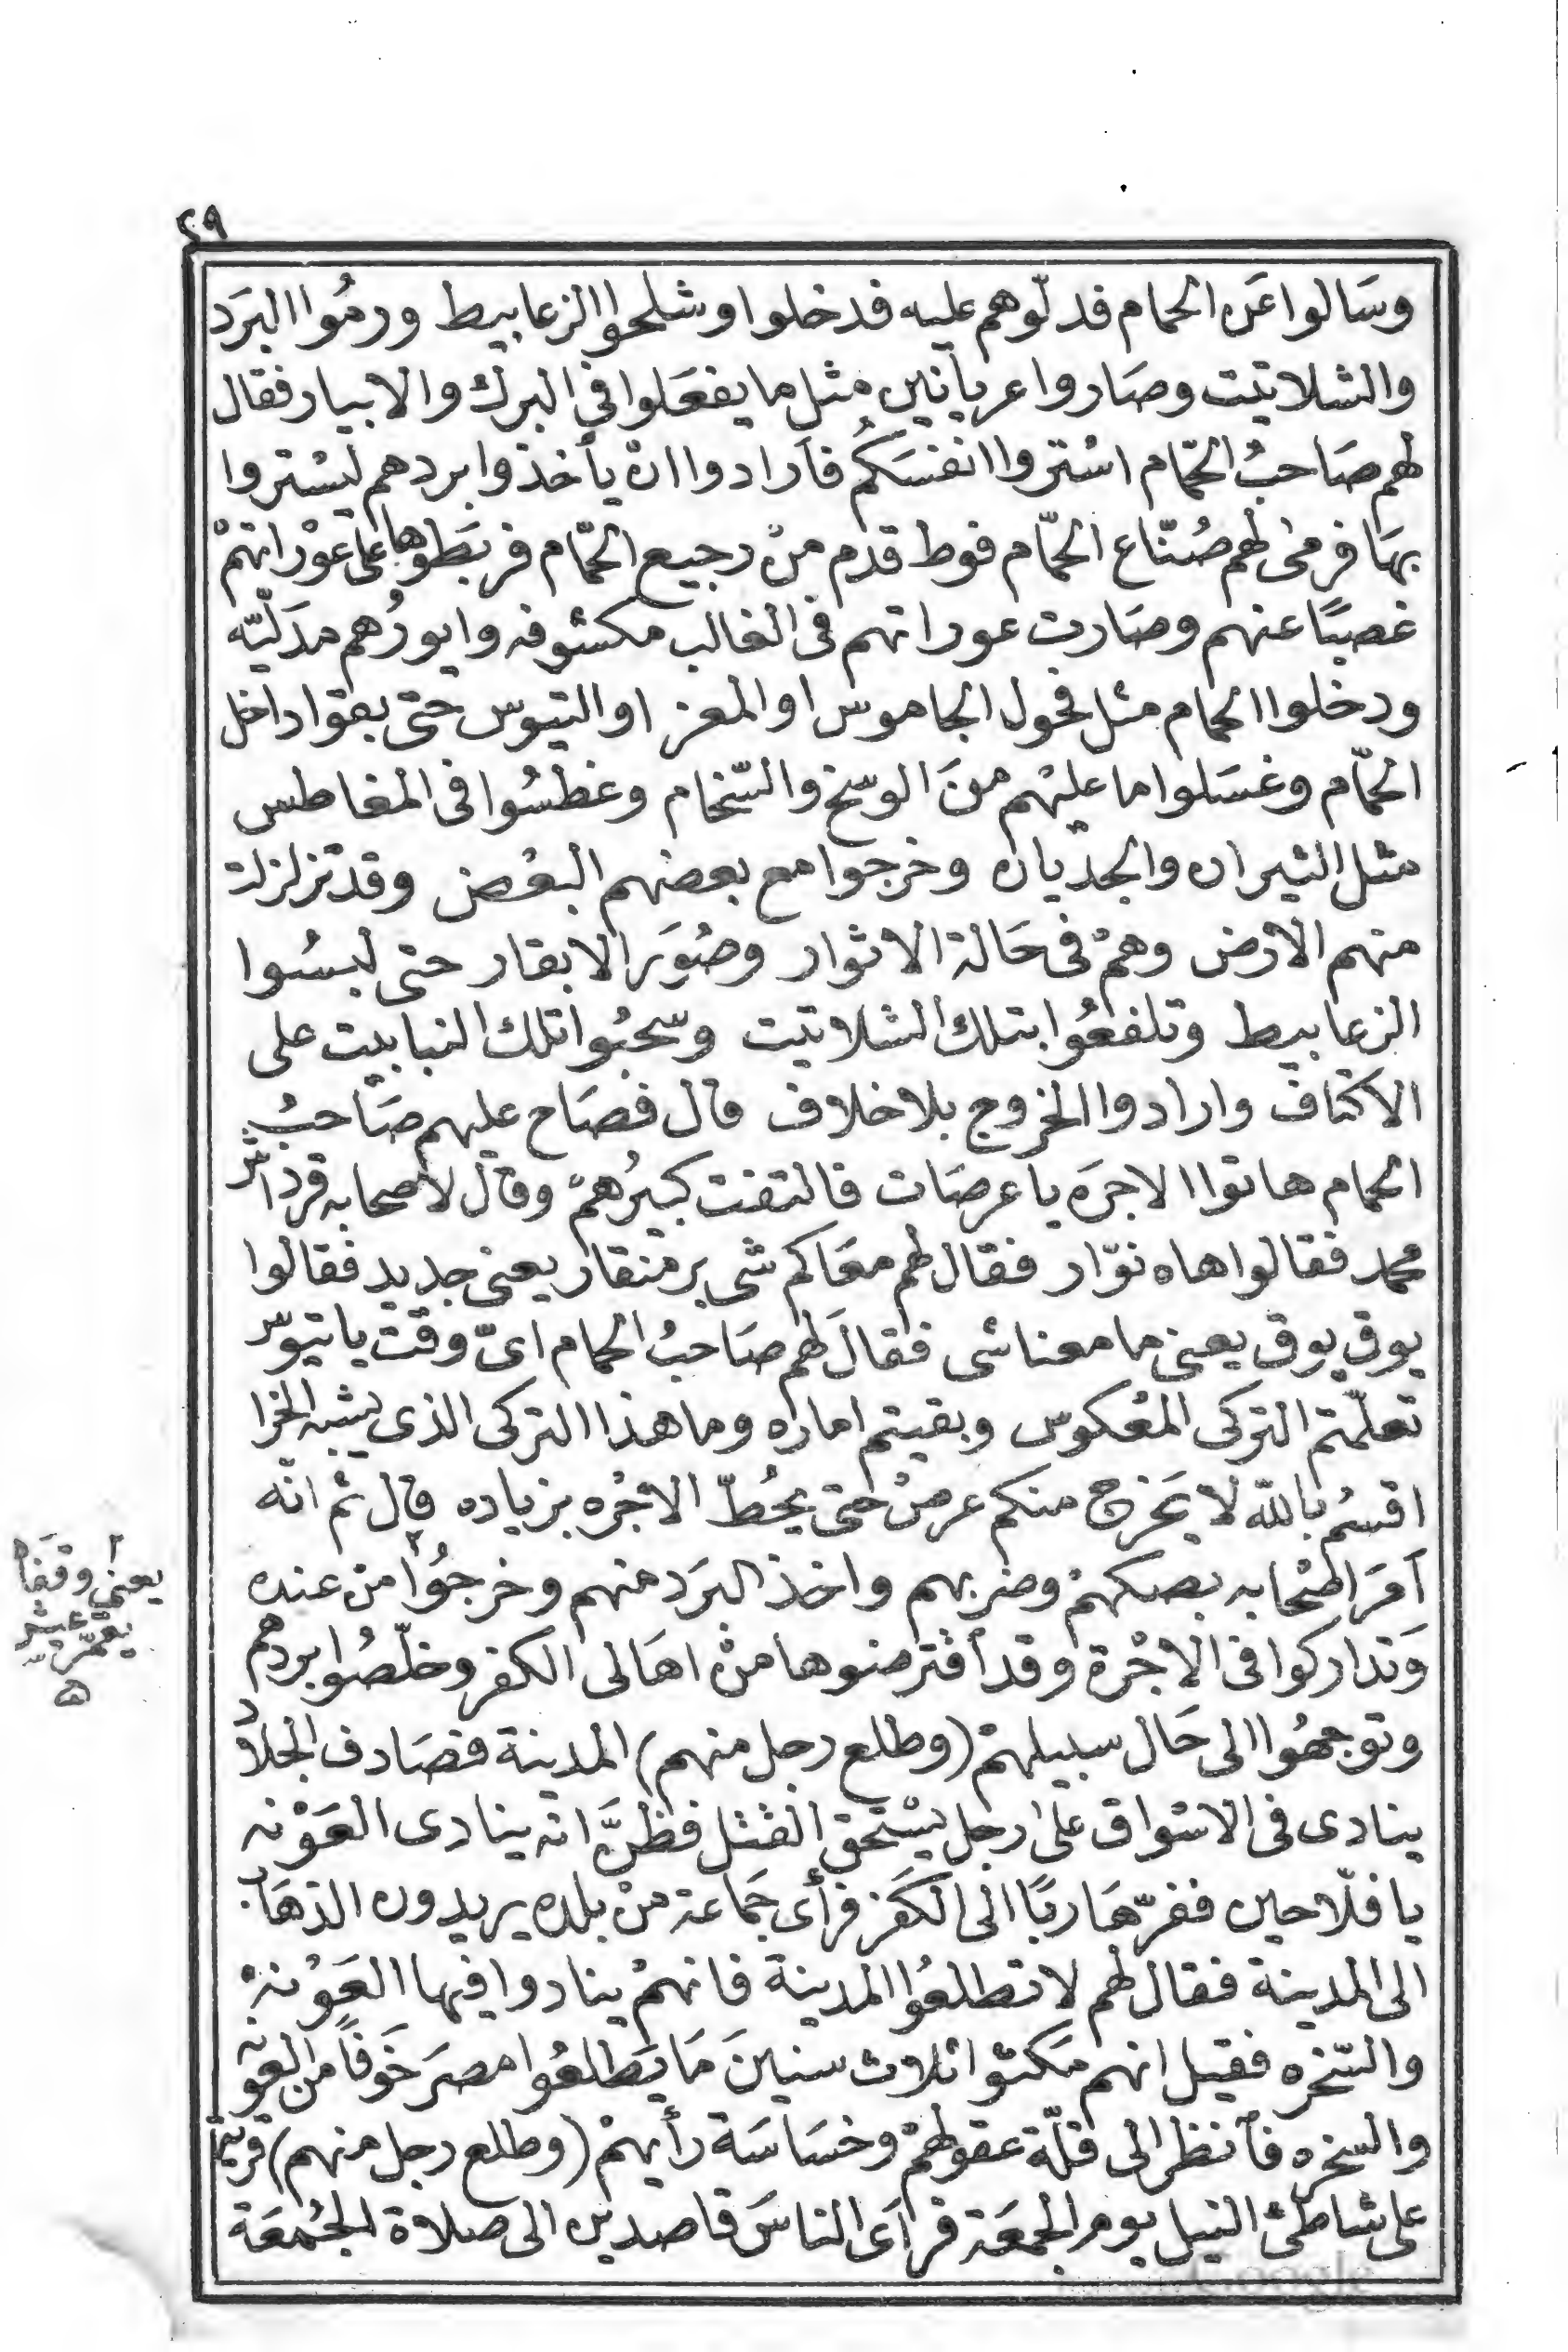 ٢٩
وسَالوا عَن الحمام فدلّوهم عليه فدخلوا وشلحوا الزعابيط ورمُوا البرَد
والشلاتيت وصَاروا عريانين مثل ما يفعَلوا في البرك والابيار فقال
لهم صَاحبُ الحمّام اسْتروا انفسَكُم فاَرادوا ان يأخذوا بردهم ليسْتروا
بهَا فرمىٰ لهم صُنّاع الحمّام فوط قدم منْ رجيع الحمّام فربَطوُها على عوْراتهمْ
غصبًا عنهم وصَارت عوراتهم فى الغالب مكشوفه وايورُهم مدَليّه
ودخلوا الحمام مثل فحول الجاموس او المعز او التيوس حتى بقوا داخل
الحمّام وغسَلوا ما عليْهم منَ الوسّخ والسّخام وغطسُوا فى المغاطس
مثل الثيران والجديان وخرجوا مع بعضهم البعْض وقد تزلزلت
منهم الارْض وهمْ فى حَالة الاثوار وصُوَر الابقار حتى لبسُوا
الزعابيط وتلفعُوا بتلك الشلاتيت وسحبُوا تلك النبابيت على
الاكتاف وارادوا الخروج بلا خلاف قال فصَاح عليهم صَاحبُ
الحمام هاتوا الاجرَه يا عرصَات فالتفت كبيرُهمْ وقال لاصحابه قردَاش
محمد فقالوا هاه نوّار فقال لهم معَاكم شى بر منقار يعنى جديد فقالوا
يوق يوق يعنى ما معنا شى فقالَ لهم صَاحبُ الحمام اىّ وقت يا تيوس
تعلّمتم التركى المعْكوس وبقيتم اماره وما هذا التركى الذى يشبه الخرا
اقسمُ بالله لا يَخرج منكم عرصْ حتى يحُطّ الاجْره بزياده قال ثم انّه
اَمرَ اصْحابه بصكهمْ وضربهم واخذ البرَد منهم وخرجوُا من عنده
يعنى وقفَاه
يقمّر عيش
ه
وَتداركوا فى الاجْرة وقد اقترضوها منْ اهَالى الكفر وخلّصُوا بردهم
وتوجهُوا الى حَال سبيلهمْ (وطلع رجل منهم) المدينة فصَادف الجلاد
ينادى فى الاسْواق علىٰ رجل يسْتحق القتْل فظنَّ انه ينادى العَوْنه
يا فلّاحين ففرّ هَاربًا الى الكفَر فرأى جَماعة منْ بلده يريدون الذهَاب
الى المدينة فقال لهم لا تطلعُوا المدينة فانهمْ ينادوا فيها العَوْنهْ
والسّخره فقيل انهم مَكثوا ثلاث سنينَ مَا يَطلعُوا مصرَ خَوفاً من العونه
والسخره فاَنظر الى قلّة عقولهمْ وخسَاسَة رأيهمْ (وطلع رجل منهم) قريَةً
على شاطىْ النيل يوم الجمعَة فراَى الناسَ قاصدين الى صلاة الجُمعَة
Google